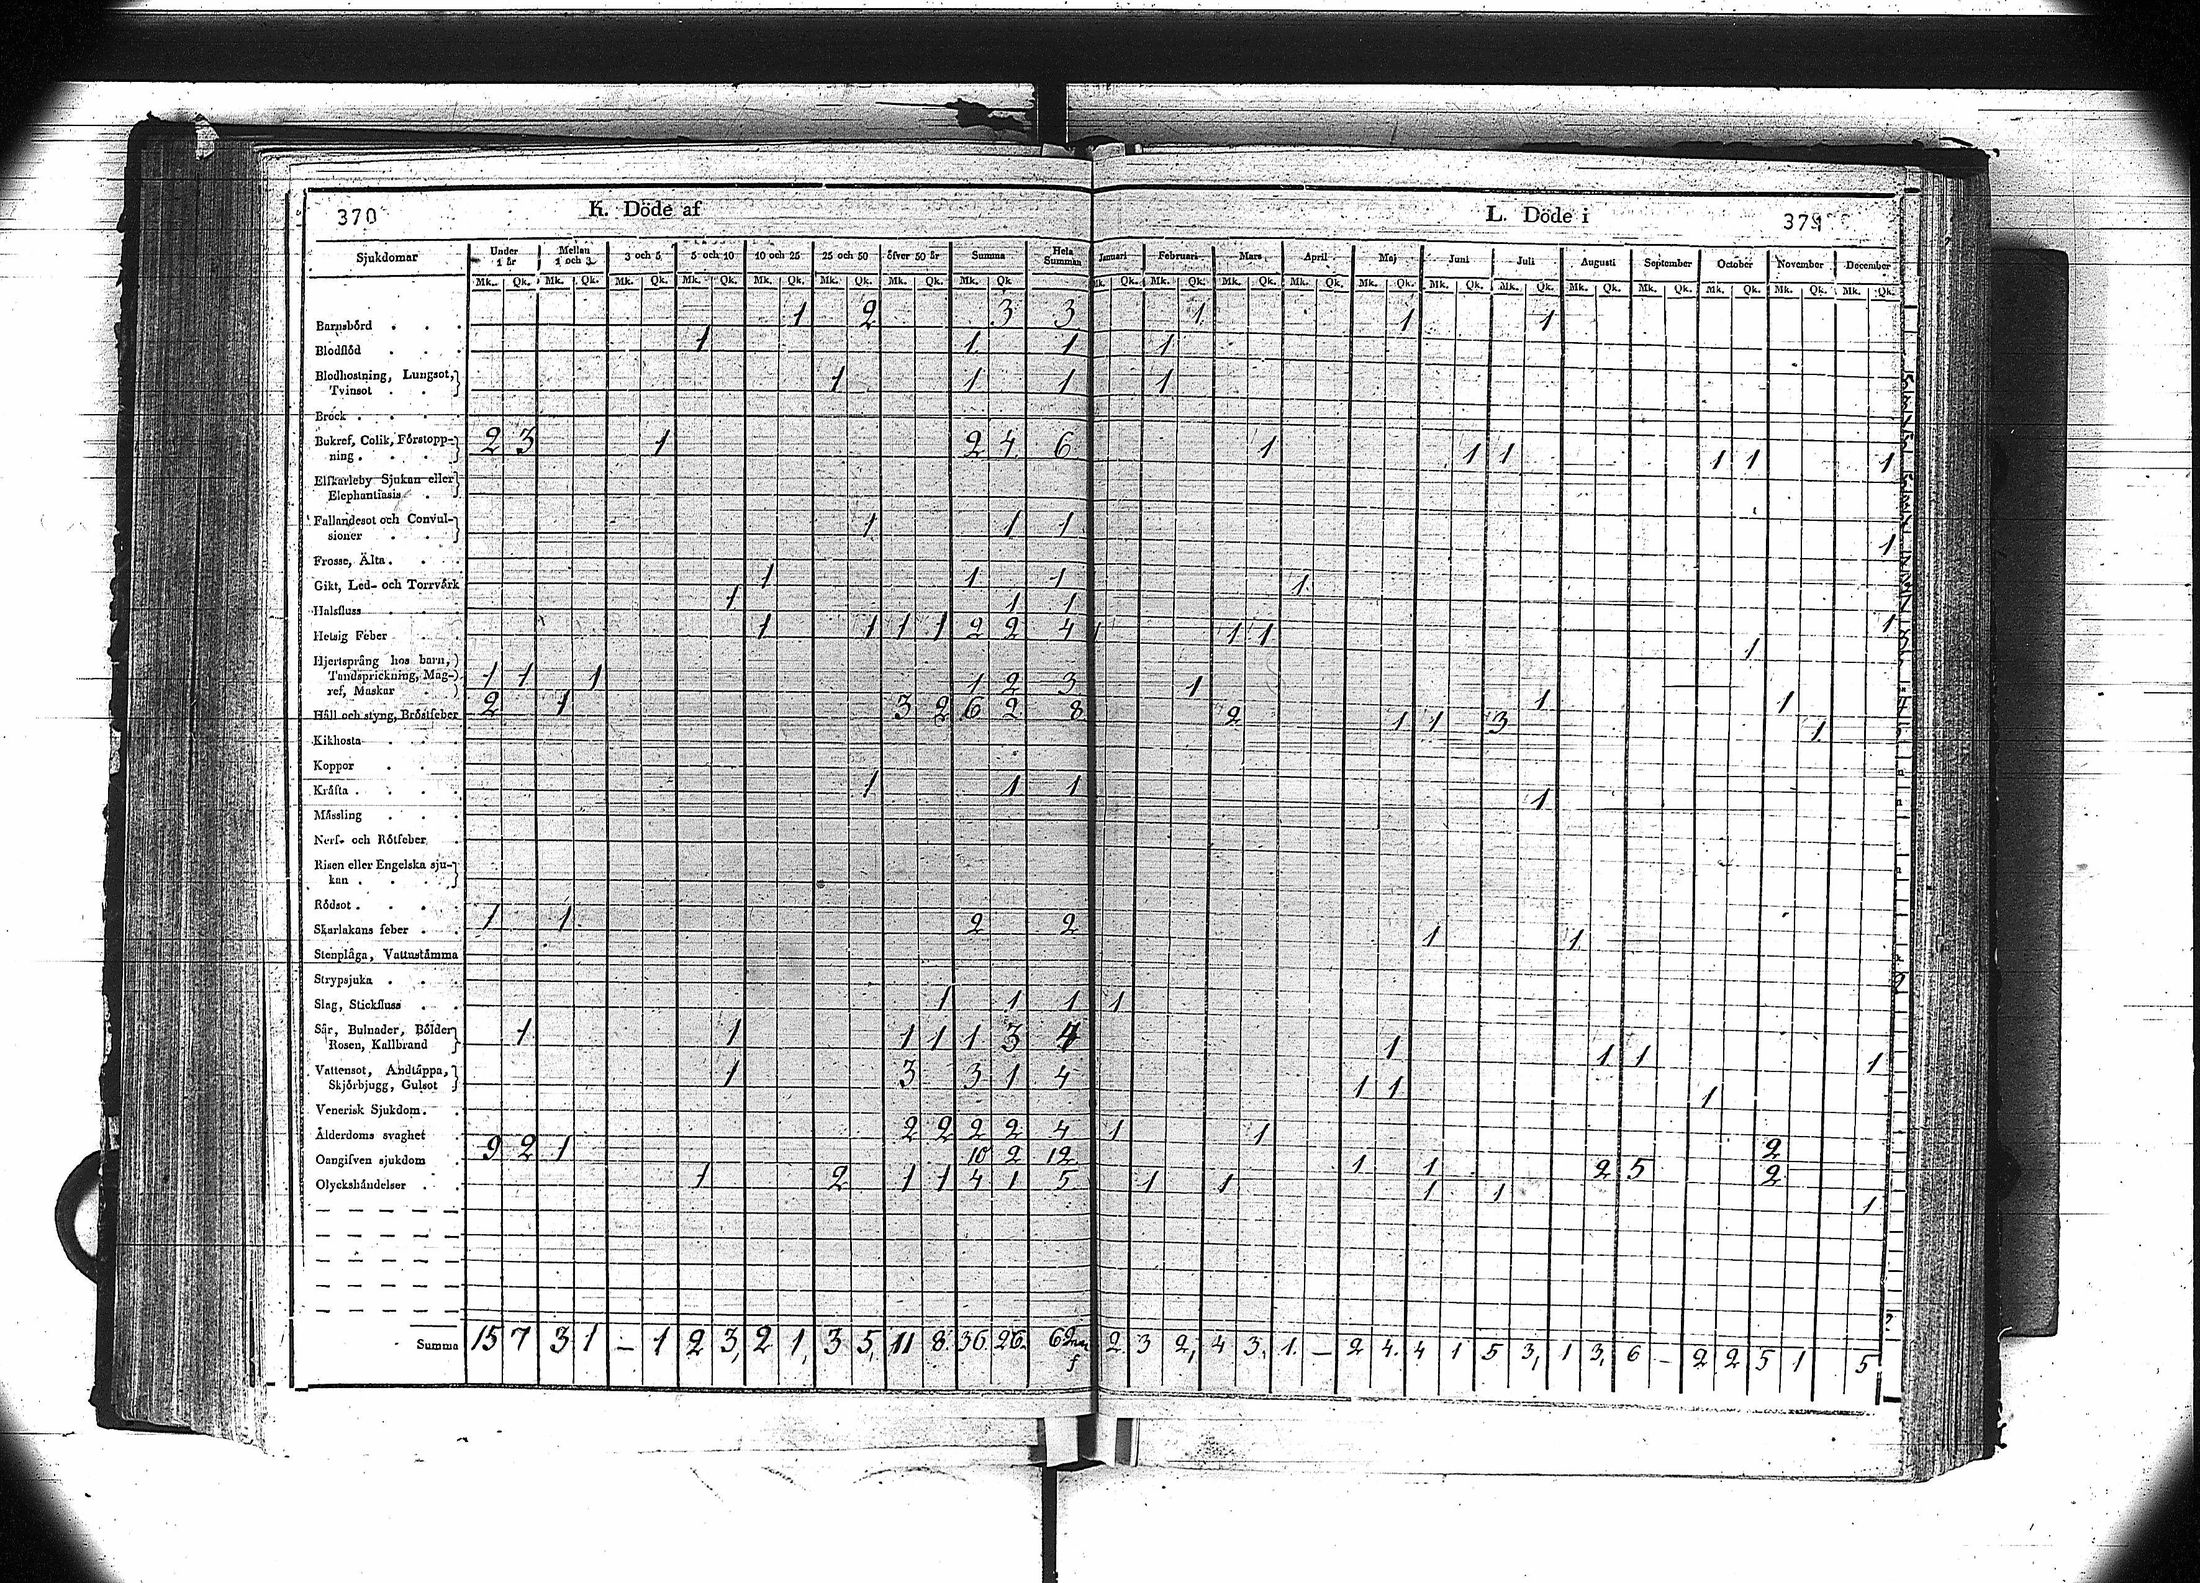 370 K. Döde af
Sjukdomar Under 1 år Mellan 1 och 3 3 och 5 5 och 10 10 och 25 25 och 50 öfver 50 år Summa Hela Summan
Mk. Qk. Mk. Qk. Mk. Qk. Mk. Qk. Mk. Qk. Mk. Qk. Mk. Qk. Mk. Qk.
Barnsbörd . . . 1 2 3 3
Blodflöd . . . 1 1 1
Blodhostning, Lungsot,
Tvinsot . . 1 1 1
Bråck . . . .
Bukref, Colik, Förstopp-
ning . . . 2 3 1 2 4 6
Elfkarleby Sjukan eller
Elephantiasis .
Fallandesot och Convul-
sioner . . 1 1 1
Frosse, Älta . . .
Gikt, Led- och Torrvärk 1 1 1
Halsfluss . . . 1 1 1
Hetsig Feber . . 1 1 1 1 2 2 4
Hjertsprång hos barn,
Tandsprickning, Mag-
ref, Maskar 1 1 1 1 2 3
Håll och styng, Bröstfeber 2 1 3 2 6 2 8
Kikhosta . . .
Koppor . . .
Kräfta . . . . 1 1 1
Mässling . . .
Nerf- och Rötfeber .
Risen eller Engelska sju-
kan . . . .
Rödsot . . . .
Skarlakans feber . . 1 1 2 2
Stenplåga, Vattustämma
Strypsjuka . . .
Slag, Stickfluss . . 1 1 1
Sår, Bulnader, Bölder
Rosen, Kallbrand 1 1 1 1 1 3 4
Vattensot, Andtäppa,
Skjörbjugg, Gulsot 1 3 3 1 4
Venerisk Sjukdom . .
Ålderdoms svaghet . 2 2 2 2 4
Oangifven sjukdom . 9 2 1 10 2 12
Olyckshändelser . . 1 2 1 1 4 1 5
Summa 15 7 3 1 – 1 2 3, 2 1, 3 5, 11 8. 36. 26. 62
L. Döde i 371
Januari Februari Mars April Maj Juni Juli Augusti September October November December
Mk. Qk. Mk. Qk. Mk. Qk. Mk. Qk. Mk. Qk. Mk. Qk. Mk. Qk. Mk. Qk. Mk. Qk. Mk. Qk. Mk. Qk. Mk. Qk.
1 1 1
1
1
1 1 1 1 1 1
1
1
1
1 1 1 1
1 1 1
2 1 1 3 1
1
1 1
1
1 1 1 1
1 1 1
1 1 2
1 1 2 5 2
1 1 1 1 1
2. 3 2, 4 3. 1. – 2 4. 4 1 5 3, 1 3, 6 – 2 2 5 1 5